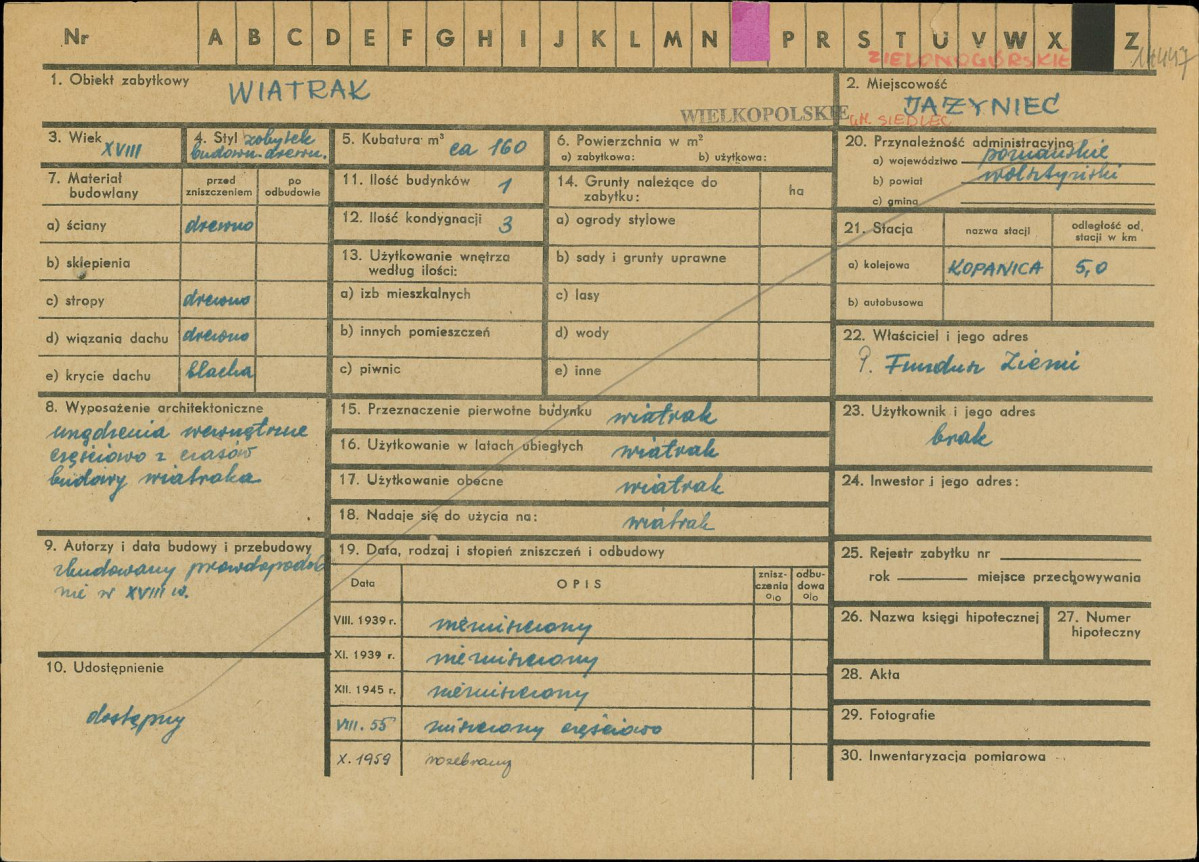 Nr A B C D E F G H I J K L M N P R S T U V W X Z
ZIELONOGÓRSKIE
1. Obiekt zabytkowy WIATRAK
WIELKOPOLSKIE
2. Miejscowość
JAŻYNIEC
GM. SIEDLEC
3. Wiek
XVIII
4. Styl zabytek
budown. drewn.
5. Kubatura m³ ca 160
6. Powierzchnia w m²
a) zabytkowa: b) użytkowa:
20. Przynależność administracyjna
a) województwo poznańskie
b) powiat wolsztyński
c) gmina
7. Materiał
budowlany
przed
zniszczeniem
po
odbudowie
a) ściany drewno
b) sklepienia
c) stropy drewno
d) wiązania dachu drewno
e) krycie dachu blacha
11. Ilość budynków 1
12. Ilość kondygnacji 3
13. Użytkowanie wnętrza
według ilości:
a) izb mieszkalnych
b) innych pomieszczeń
c) piwnic
14. Grunty należące do
zabytku:
ha
a) ogrody stylowe
b) sady i grunty uprawne
c) lasy
d) wody
e) inne
21. Stacja
nazwa stacji
odległość od
stacji w km
a) kolejowa KOPANICA 5,0
b) autobusowa
22. Właściciel i jego adres
P. Fundusz Ziemi
8. Wyposażenie architektoniczne
urządzenia wewnętrzne
częściowo z czasów
budowy wiatraka
15. Przeznaczenie pierwotne budynku wiatrak
16. Użytkowanie w latach ubiegłych wiatrak
17. Użytkowanie obecne wiatrak
18. Nadaje się do użycia na: wiatrak
23. Użytkownik i jego adres
brak
24. Inwestor i jego adres:
9. Autorzy i data budowy i przebudowy
zbudowany prawdopodob
nie w XVIII w.
10. Udostępnienie
dostępny
19. Data, rodzaj i stopień zniszczeń i odbudowy
Data OPIS
znisz-
czenia
%
odbu-
dowa
%
VIII. 1939 r. niezniszczony
XI. 1939 r. niezniszczony
XII. 1945 r. niezniszczony
VIII. 55 zniszczony częściowo
X. 1959 rozebrany
25. Rejestr zabytku nr
rok miejsce przechowywania
26. Nazwa księgi hipotecznej
27. Numer
hipoteczny
28. Akta
29. Fotografie
30. Inwentaryzacja pomiarowa